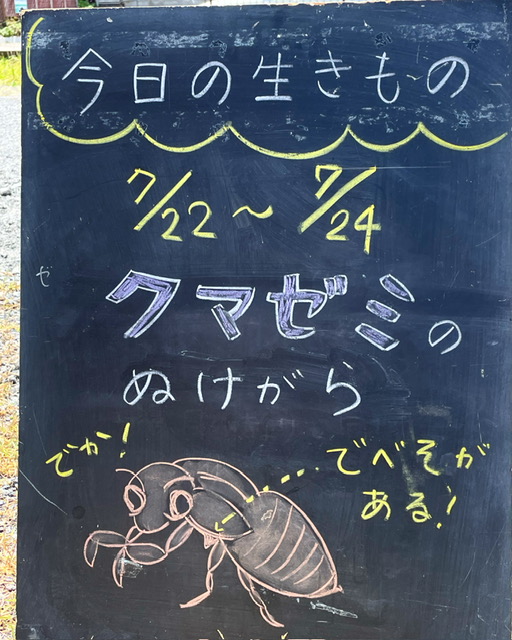 今日の生きもの
7/22～7/24
クマゼミの
ぬけがら
でか!
でべそが
ある!